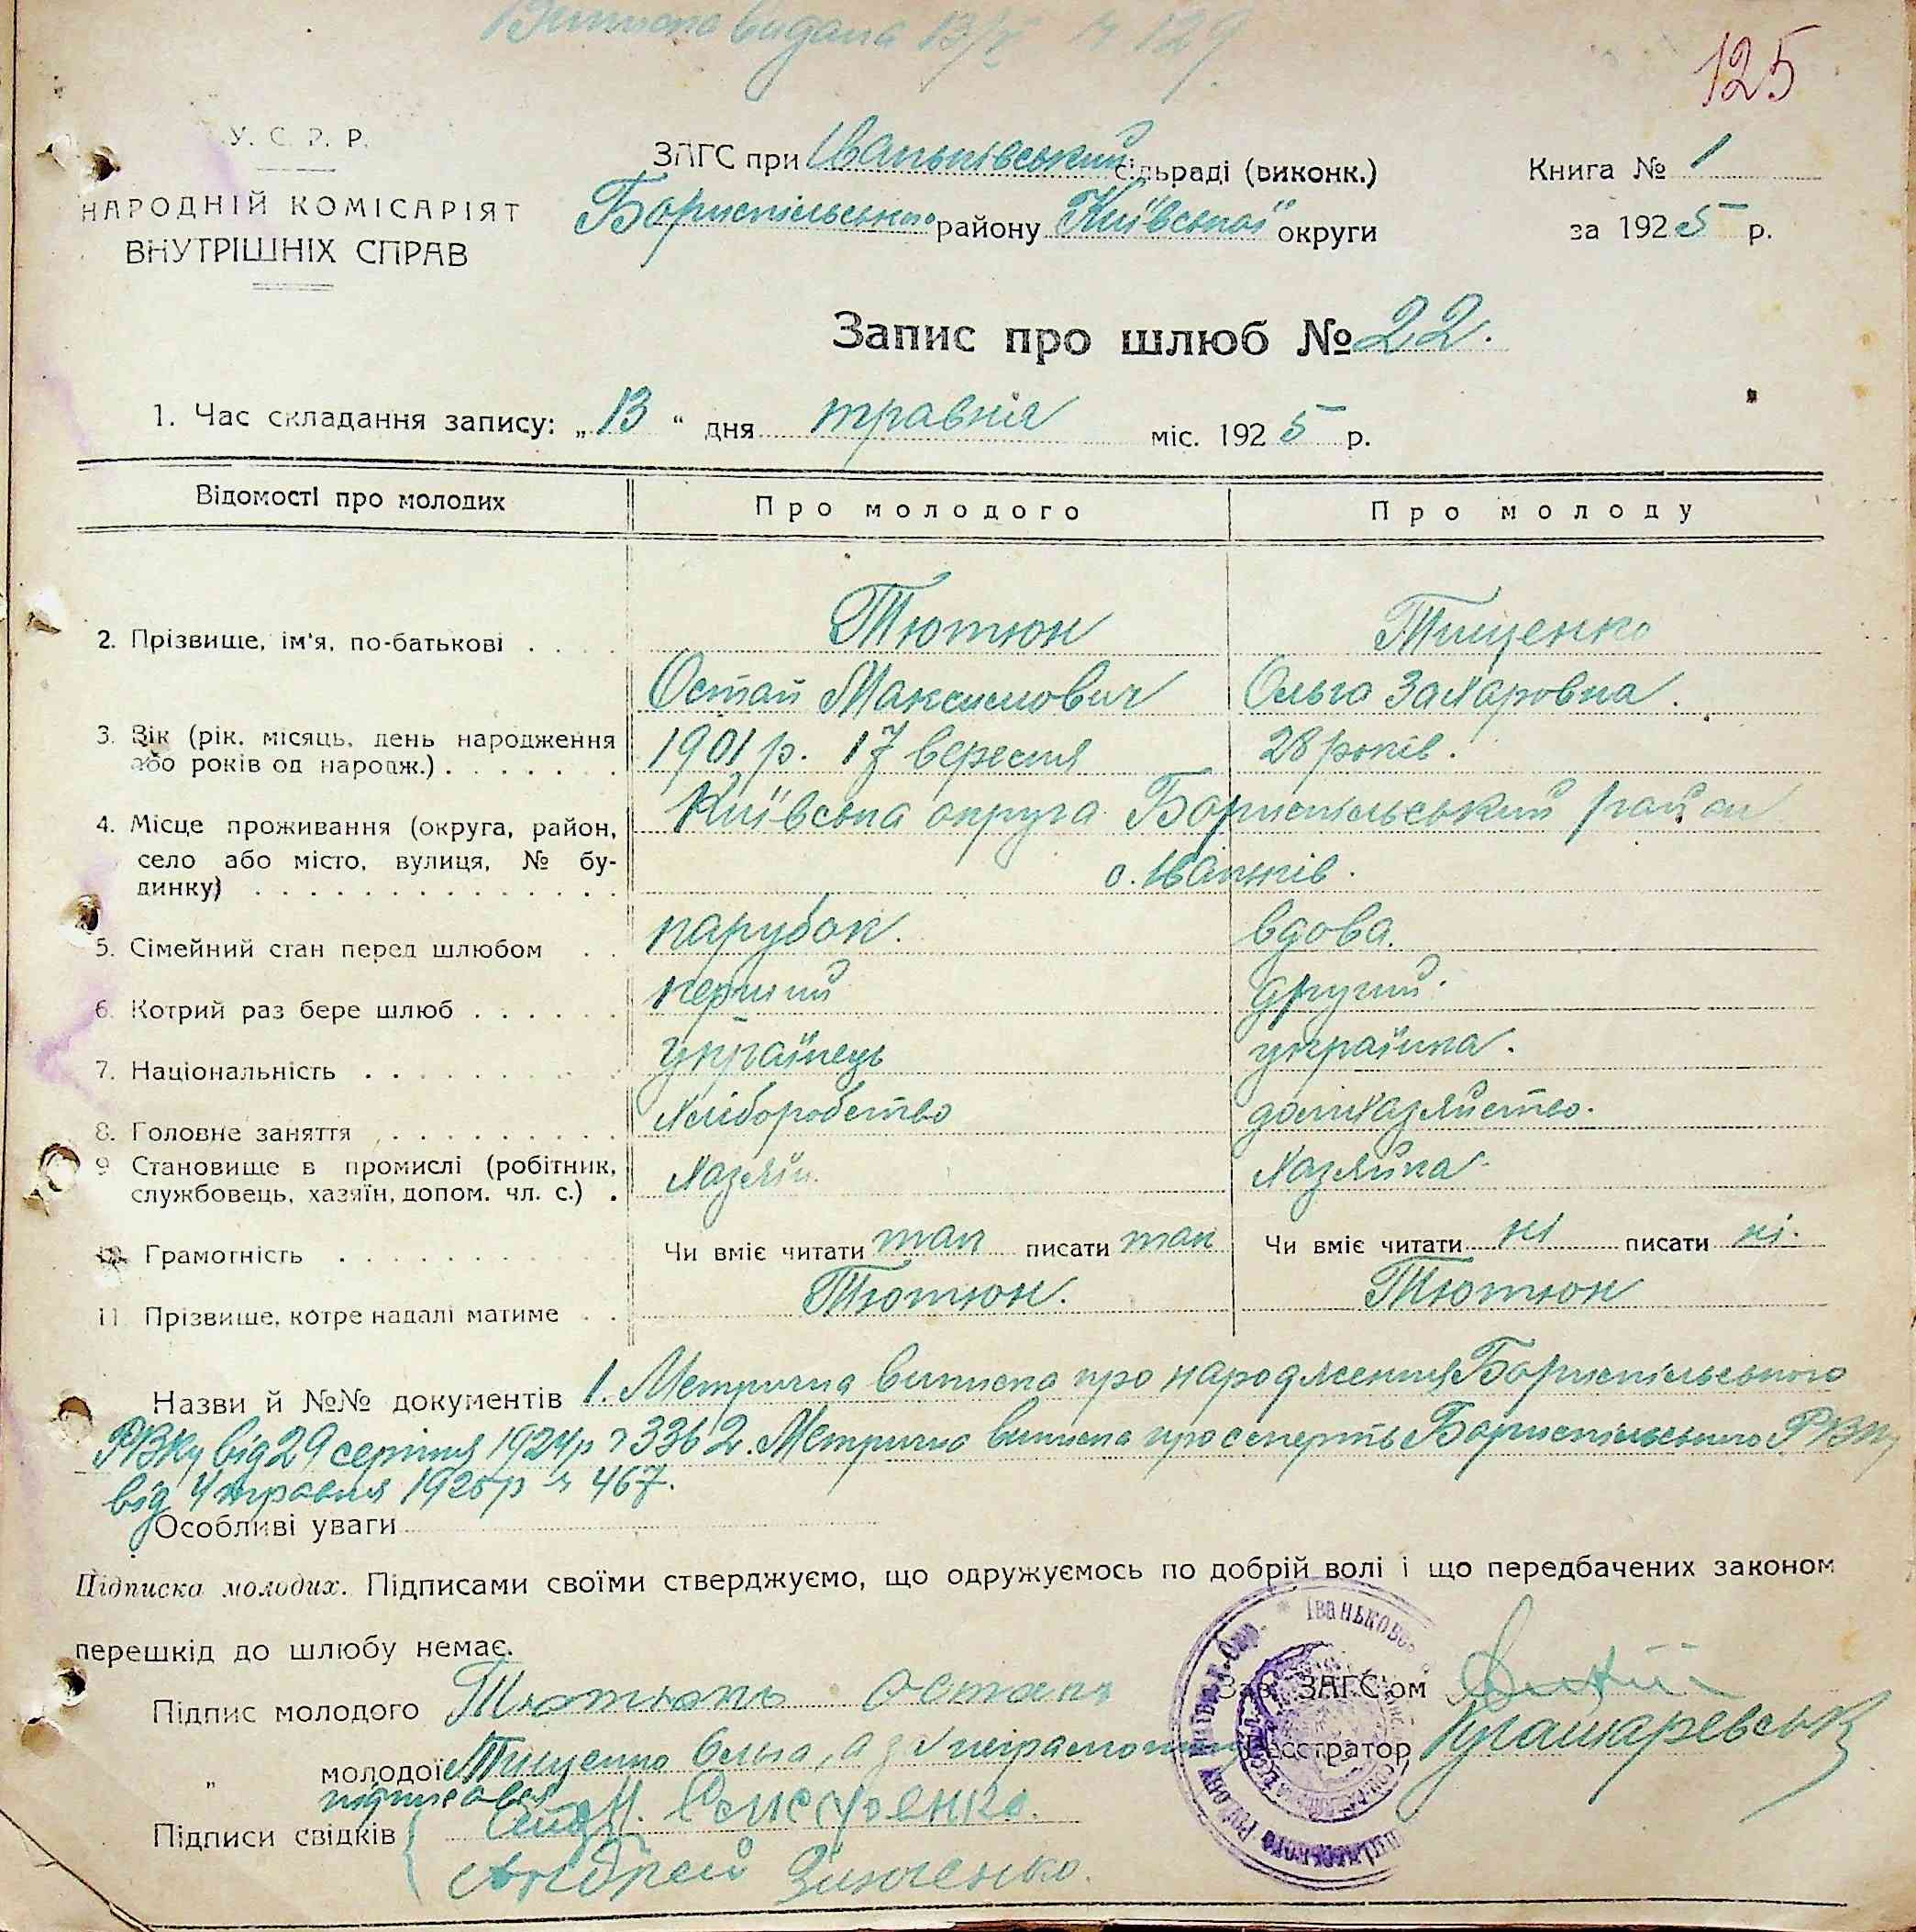 Виписка видана 13/V № 129
125
У. С. Р. Р.
НАРОДНІЙ КОМІСАРІЯТ
ВНУТРІШНІХ СПРАВ
ЗАГС при Іваньківський сільраді (виконк.)
Бориспільського району Київської округи
Книга № 1
за 1925 р.
Запис про шлюб № 22.
1. Час складання запису: „13“ дня травня міс. 1925 р.
Відомості про молодих Про молодого Про молоду
2. Прізвище, ім'я, по-батькові Тютюн Тищенко
Остап Максимович Ольга Захаровна.
3. Вік (рік, місяць, день народження або років од народж.) 1901 р. 17 вересня 28 років.
4. Місце проживання (округа, район, Київська округа Бориспільський район
село або місто, вулиця, № бу-
динку) с. Іваньків.
5. Сімейний стан перед шлюбом парубок. вдова.
6. Котрий раз бере шлюб перший другий.
7. Національність українець українка.
8. Головне заняття хліборобство домхазяйство.
9. Становище в промислі (робітник, хазяїн. хазяйка
службовець, хазяїн, допом. чл. с.)
10. Грамотність Чи вміє читати так писати так Чи вміє читати ні писати ні.
11. Прізвище, котре надалі матиме Тютюн. Тютюн
Назви й №№ документів 1. Метрична виписка про народження Бориспільського
РВКу від 29 серпня 1924 р № 336 2. Метрична виписка про смерть Бориспільського РВКу
від 4 травня 1925 р № 467.
Особливі уваги
Підписка молодих. Підписами своїми стверджуємо, що одружуємось по добрій волі і що передбачених законом
перешкід до шлюбу немає.
Підпис молодого Тютюнь Остапь
„ молодої Тищенко Ольга, а за неграмотну
підписався
Підписи свідків
Андрей Зинченко.
Зав. ЗАГС'ом
Реєстратор